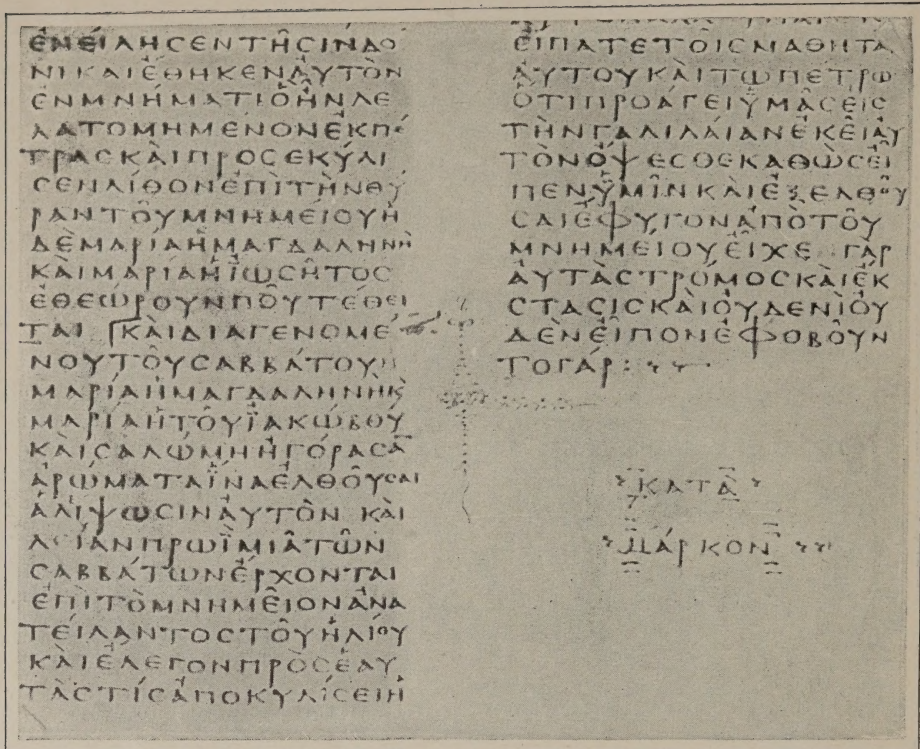 ἐΝΕΊΛΗϹΕΝΤΗ͂ϹΙΝΔΟ
ΝΙΚΑΙἔΘΗΚΕΝἀΥΤῸΝ
ἐΝΜΝΉΜΑΤΙὃἦΝΛΕ
ΛΑΤΟΜΗΜΈΝΟΝἐΚΠΕ
ΤΡΑϹΚΑῚΠΡΟϹΕΚΎΛΙ
ϹΕΝΛΊΘΟΝἐΠῚΤῊΝΘΥ
ΡΑΝΤΟΥ͂ΜΝΗΜΕΊΟΥἡ
ΔῈΜΑΡΊΑἡΜΑΓΔΑΛΗΝῊ
ΚΑῚΜΑΡΊΑἡἸΩϹΗ͂ΤΟϹ
ἐΘΕΏΡΟΥΝΠΟΥ͂ΤΕΘΕΙ
ΤΑΙ ΚΑῚΔΙΑΓΕΝΟΜΕ
ΝΟΥΤΟΥ͂ϹΑΒΒΆΤΟΥἡ
ΜΑΡΊΑἡΜΑΓΔΑΛΗΝῊΚ̀
ΜΑΡΊΑἡΤΟΥ͂ἸΑΚΏΒΟΥ
ΚΑῚϹΑΛΏΜΗἠΓΌΡΑϹΑ̅
ἀΡΏΜΑΤΑἵΝΑἐΛΘΟΥ͂ϹΑΙ
ἀΛΊΨΩϹΙΝἀΥΤῸΝ ΚΑῚ
ΛΕΊΑΝΠΡΩΪ̀ΜΙΑ͂ΤΩ͂Ν
ϹΑΒΒΆΤΩΝἔΡΧΟΝΤΑΙ
ἐΠῚΤῸΜΝΗΜΕΙ͂ΟΝἀΝΑ
ΤΕΊΛΑΝΤΟϹΤΟΥ͂ἡΛΊΟΥ
ΚΑῚἔΛΕΓΟΝΠΡῸϹἑΑΥ
ΤᾺϹΤΊϹἀΠΟΚΥΛΊϹΕΙἡ
ΕἴΠΑΤΕΤΟΙ͂ϹΜΑΘΗΤΑ
ἀΥΤΟΥΚΑῚΤΩ͂ΠΈΤΡΩ
ὅΤΙΠΡΟΆΓΕΙὙΜΑ͂ϹΕἰϹ
ΤῊΝΓΑΛΙΛΑΊΑΝἐΚΕΙ͂ἀΥ
ΤῸΝὄΨΕϹΘΕΚΑΘῺϹΕἶ
ΠΕΝὙΜΙ͂ΝΚΑῚἐΞΕΛΘΟΥ
ϹΑΙἔΦΥΓΟΝἀΠῸΤΟΥ͂
ΜΝΗΜΕΊΟΥΕἶΧΕ ΓᾺΡ
ἀΥΤᾺϹΤΡΌΜΟϹΚΑῚἔΚ
ϹΤΑϹΙϹΚΑῚΟὐΔΕΝῚΟΥ
ΔῈΝΕἶΠΟΝἐΦΟΒΟΥ͂Ν
ΤΟΓΆΡ:
ΚΑΤᾺ
ΜΆΡΚΟΝ